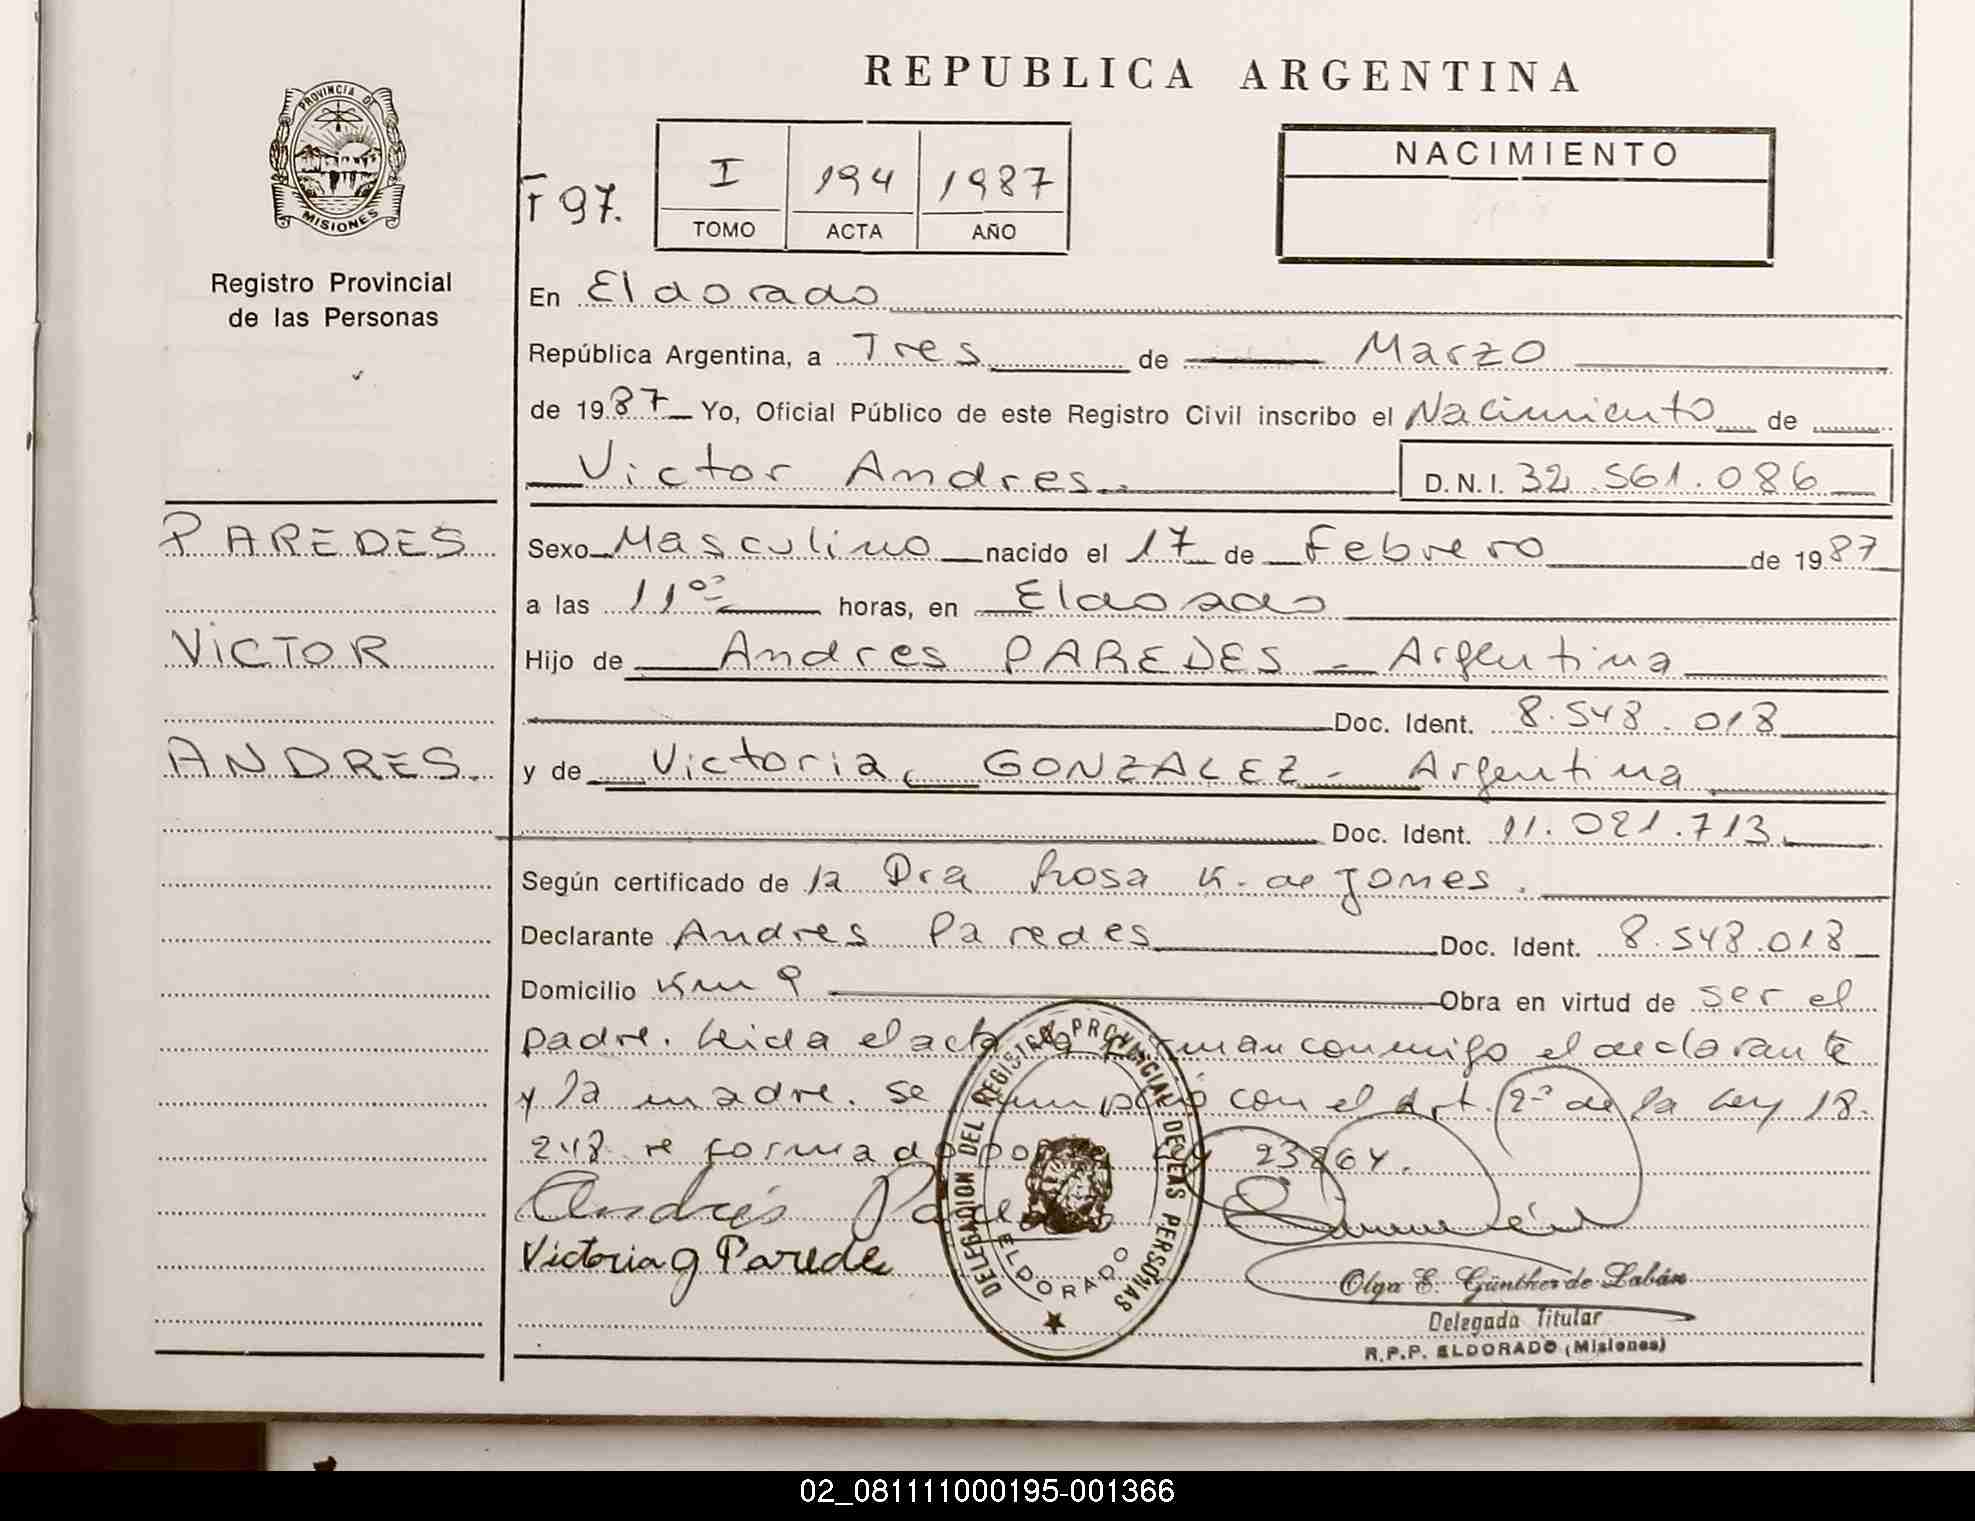 REPUBLICA ARGENTINA
PROVINCIA DE
MISIONES
Registro Provincial
de las Personas
F 97.
I 194 1987
TOMO ACTA AÑO
NACIMIENTO
En Eldorado
República Argentina, a Tres de Marzo
de 1987 Yo, Oficial Público de este Registro Civil inscribo el Nacimiento de
Victor Andres D.N.I. 32.561.086
PAREDES
Sexo Masculino nacido el 17 de Febrero de 1987
a las 11 horas, en Eldorado
VICTOR
Hijo de Andres PAREDES - Argentina
Doc. Ident. 8.548.018
ANDRES.
y de Victoria GONZALEZ - Argentina
Doc. Ident. 11.021.713
Según certificado de la Dra Rosa K. de Jones.
Declarante Andres Paredes Doc. Ident. 8.548.018
Domicilio Km 9 Obra en virtud de ser el
padre. Leida el acta la firman conmigo el declarante
y la madre. Se cumplió con el Art. 2º de la Ley 18.
248 reformado por Ley
Andrés Paredes
Victoria G Parede
DELEGACION DEL REGISTRO PROVINCIAL DE LAS PERSONAS
ELDORADO
Olga E. Günther de Labán
Delegada Titular
R.P.P. ELDORADO (Misiones)
02_081111000195-001366